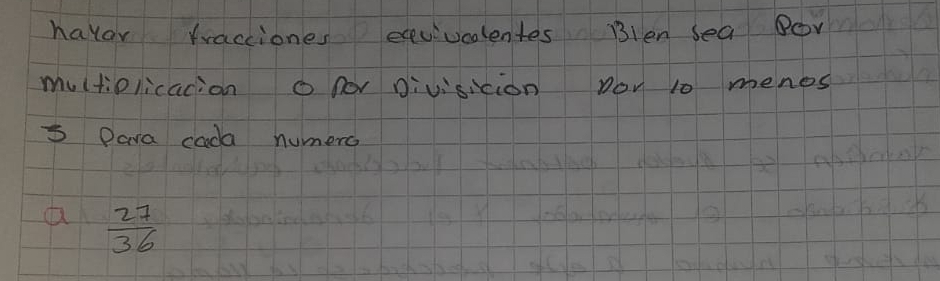 hallar fracciones equivalentes Bien sea Por
multiplicacion o Por Divisicion Por lo menos
3 Para cada numero
a 27/36